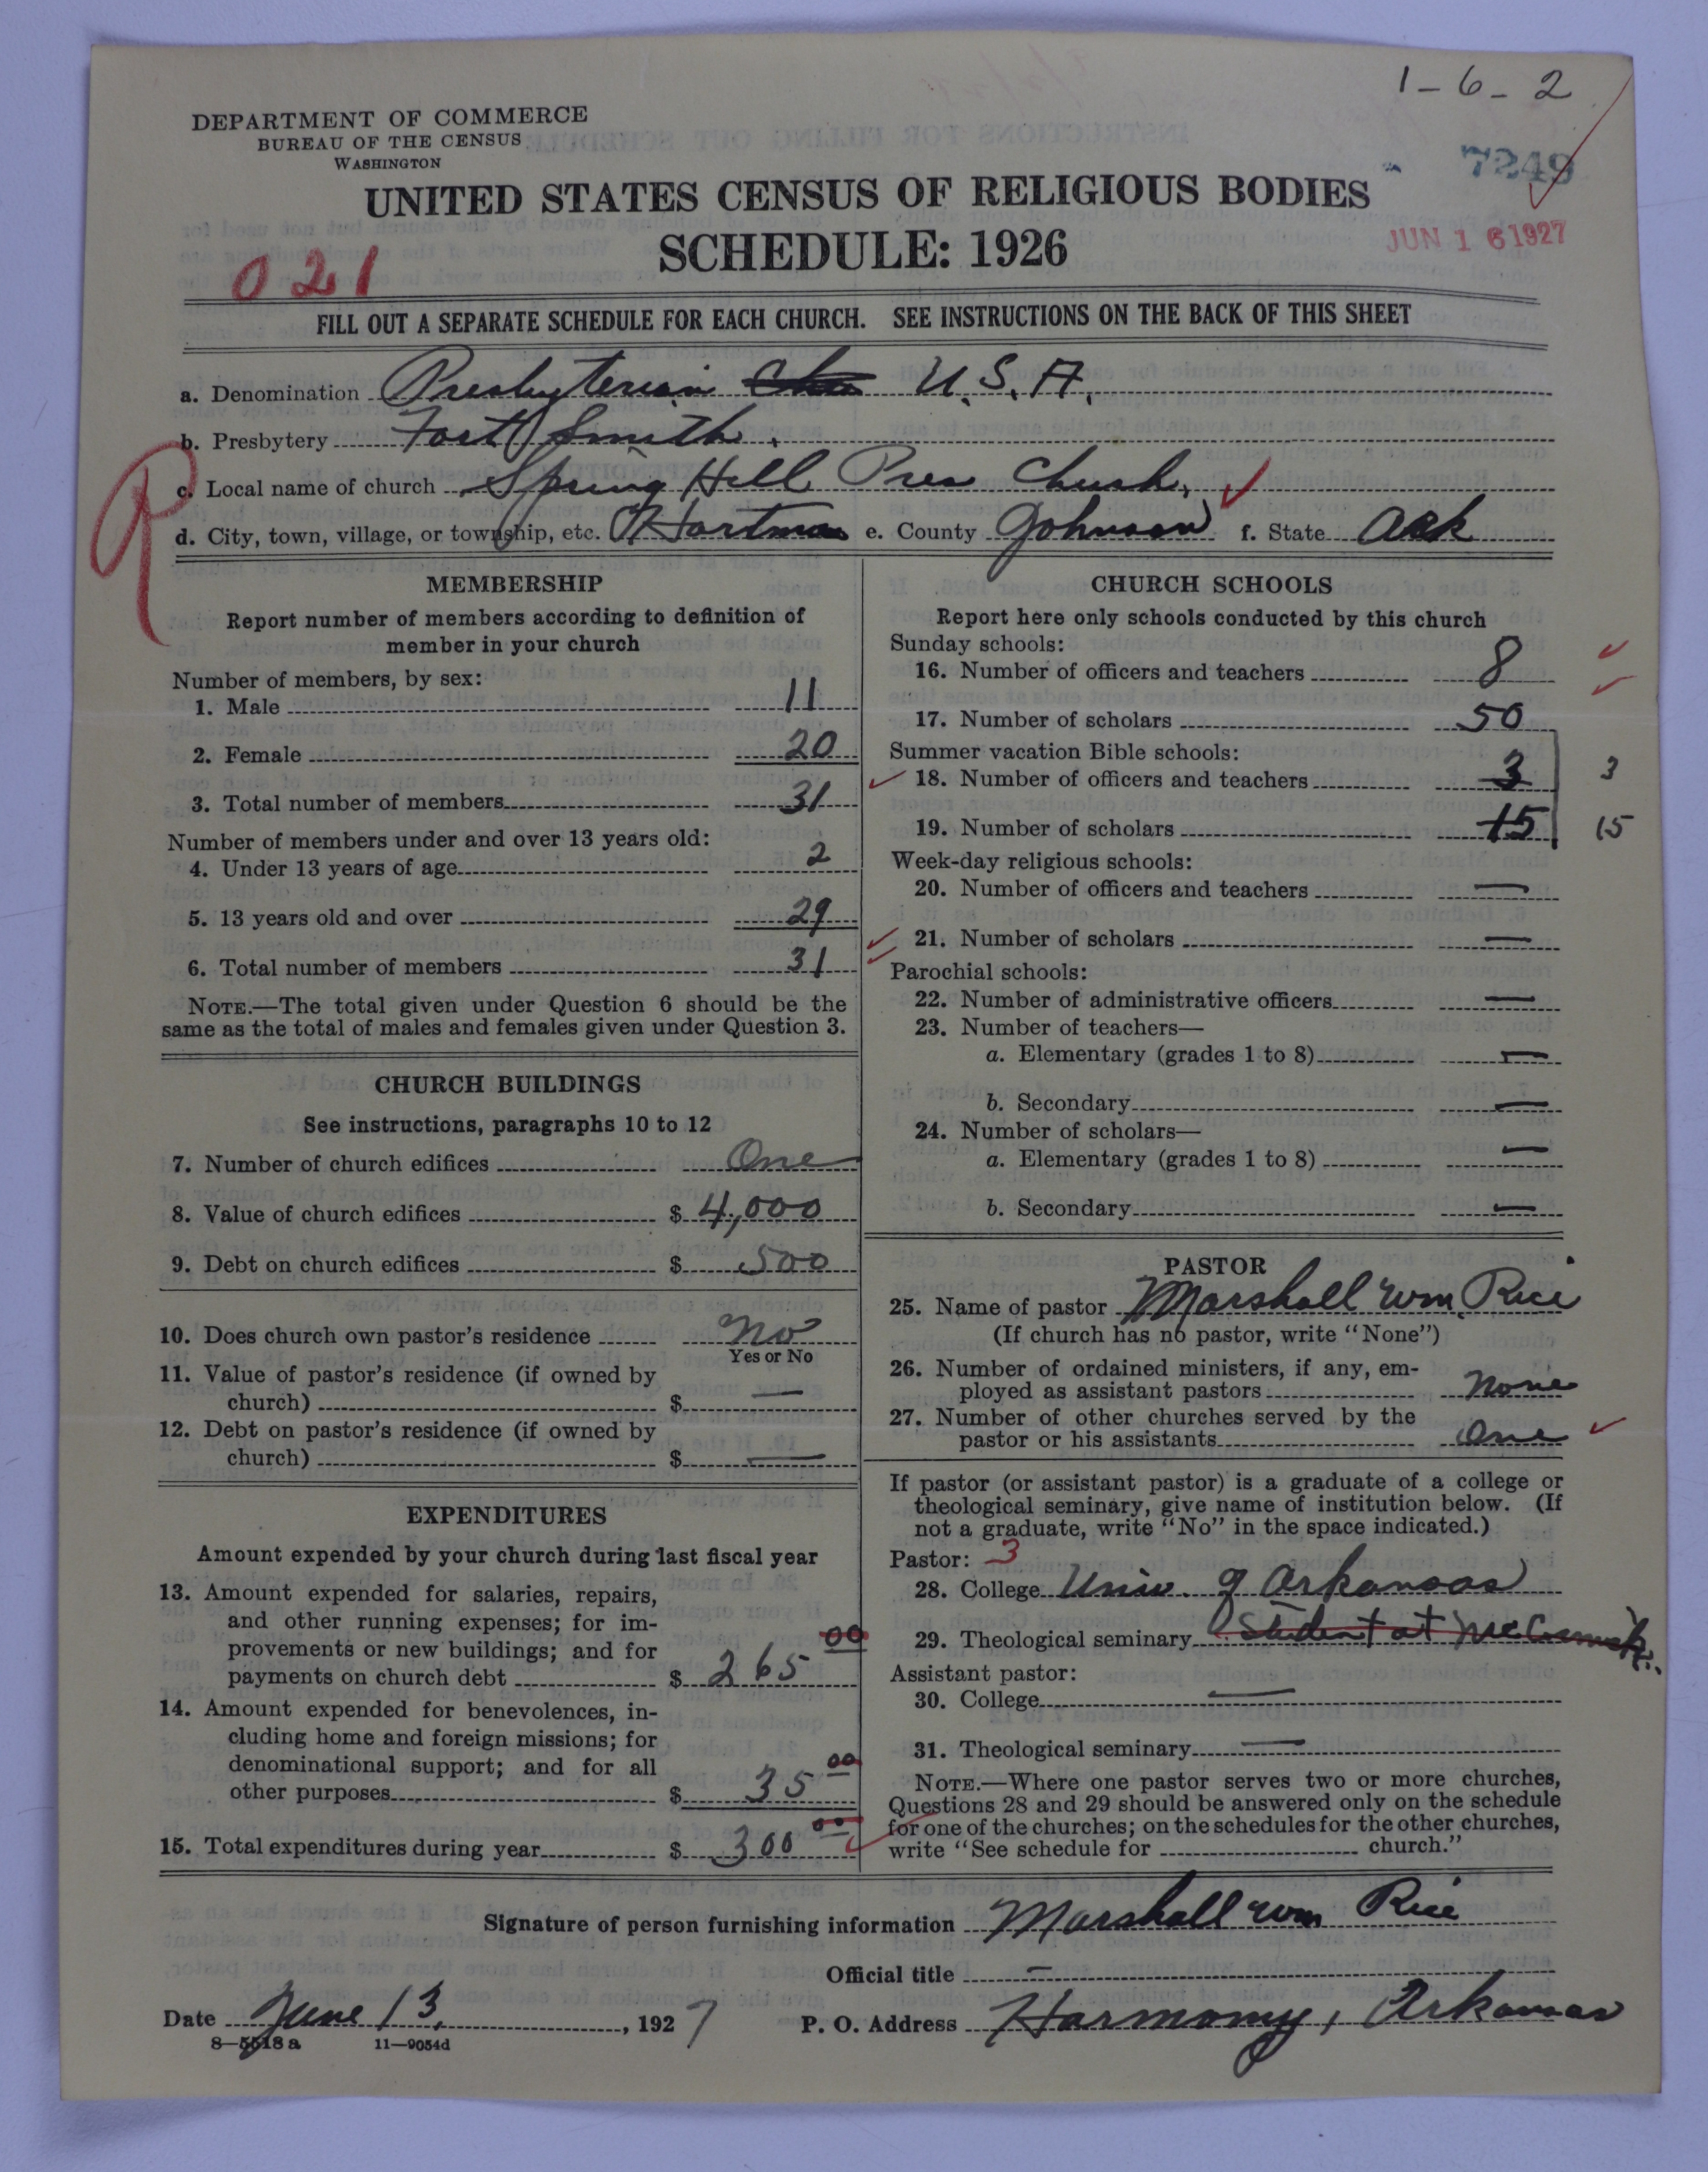 1-6-2
DEPARTMENT OF COMMERCE
BUREAU OF THE CENSUS
WASHINGTON
7249
UNITED STATES CENSUS OF RELIGIOUS BODIES
SCHEDULE: 1926
JUN 16 1927
021
FILL OUT A SEPARATE SCHEDULE FOR EACH CHURCH. SEE INSTRUCTIONS ON THE BACK OF THIS SHEET
a. Denomination Presbyterian U.S.A.
b. Presbytery Fort Smith.
R
c. Local name of church Spring Hill Pres Church,
d. City, town, village, or township, etc. Hartman e. County Johnson f. State Ark
MEMBERSHIP
Report number of members according to definition of
member in your church
Number of members, by sex:
1. Male 11
2. Female 20
3. Total number of members 31
Number of members under and over 13 years old:
4. Under 13 years of age 2
5. 13 years old and over 29
6. Total number of members 31
NOTE.—The total given under Question 6 should be the
same as the total of males and females given under Question 3.
CHURCH BUILDINGS
See instructions, paragraphs 10 to 12
7. Number of church edifices One
8. Value of church edifices $ 4,000
9. Debt on church edifices $ 500
10. Does church own pastor's residence no
Yes or No
11. Value of pastor's residence (if owned by
church) $ —
12. Debt on pastor's residence (if owned by
church) $ —
EXPENDITURES
Amount expended by your church during last fiscal year
13. Amount expended for salaries, repairs,
and other running expenses; for im-
provements or new buildings; and for
payments on church debt $ 265 00
14. Amount expended for benevolences, in-
cluding home and foreign missions; for
denominational support; and for all
other purposes $ 35 00
15. Total expenditures during year $ 300 00
CHURCH SCHOOLS
Report here only schools conducted by this church
Sunday schools:
16. Number of officers and teachers 8
17. Number of scholars 50
Summer vacation Bible schools:
18. Number of officers and teachers 3 3
19. Number of scholars 15 15
Week-day religious schools:
20. Number of officers and teachers —
21. Number of scholars —
Parochial schools:
22. Number of administrative officers —
23. Number of teachers—
a. Elementary (grades 1 to 8) —
b. Secondary —
24. Number of scholars—
a. Elementary (grades 1 to 8) —
b. Secondary —
PASTOR
25. Name of pastor Marshall Wm. Rice
(If church has no pastor, write "None")
26. Number of ordained ministers, if any, em-
ployed as assistant pastors none
27. Number of other churches served by the
pastor or his assistants One
If pastor (or assistant pastor) is a graduate of a college or
theological seminary, give name of institution below. (If
not a graduate, write "No" in the space indicated.)
Pastor: 3
28. College Univ. of Arkansas
29. Theological seminary Student at McCormick.
Assistant pastor:
30. College —
31. Theological seminary —
NOTE.—Where one pastor serves two or more churches,
Questions 28 and 29 should be answered only on the schedule
for one of the churches; on the schedules for the other churches,
write "See schedule for church."
Signature of person furnishing information Marshall Wm Rice
Official title —
Date June 13, 1927 P. O. Address Harmony, Arkansas
8—5518 a 11—9054d